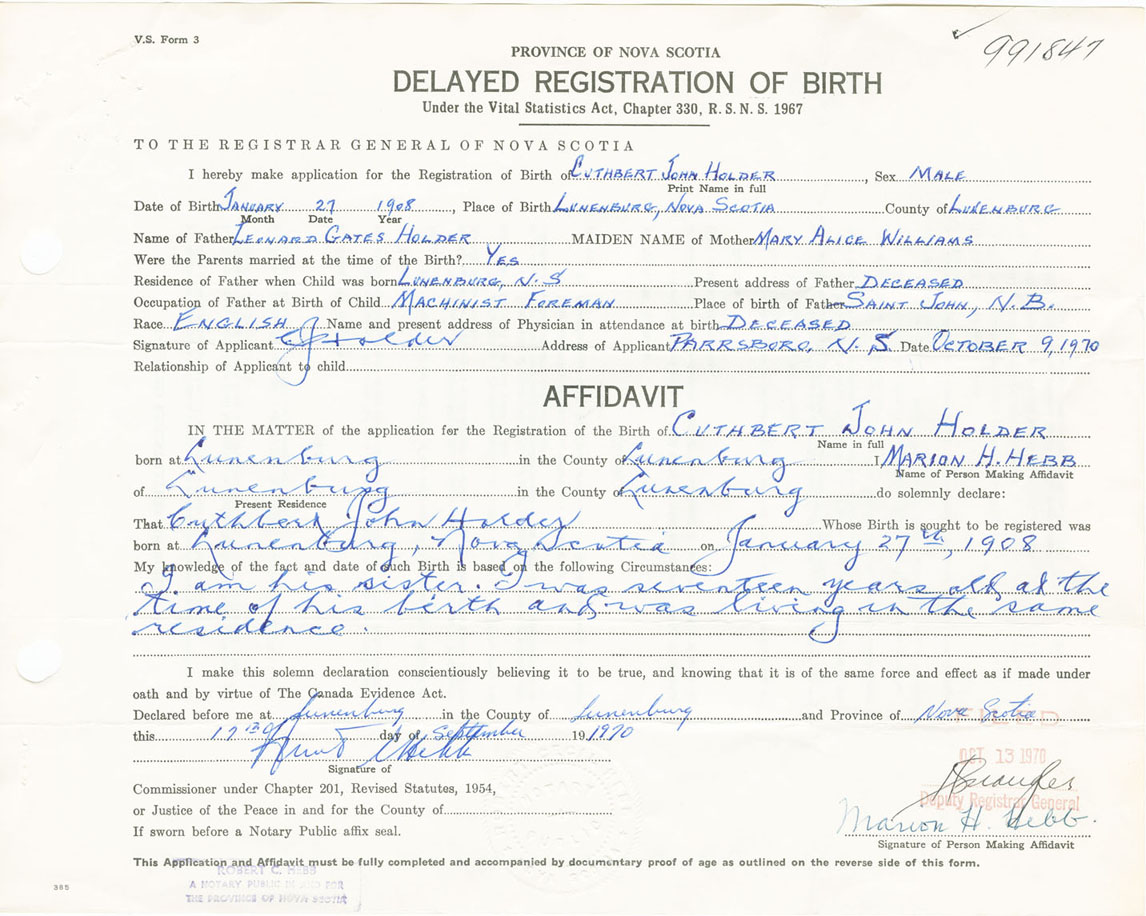 V.S. Form 3
991847
PROVINCE OF NOVA SCOTIA
DELAYED REGISTRATION OF BIRTH
Under the Vital Statistics Act, Chapter 330, R. S. N. S. 1967
TO THE REGISTRAR GENERAL OF NOVA SCOTIA
I hereby make application for the Registration of Birth of CUTHBERT JOHN HOLDER, Sex MALE
Print Name in full
Date of Birth JANUARY 27 1908, Place of Birth LUNENBURG, NOVA SCOTIA County of LUNENBURG
Month Date Year
Name of Father LEONARD GATES HOLDER MAIDEN NAME of Mother MARY ALICE WILLIAMS
Were the Parents married at the time of the Birth? YES
Residence of Father when Child was born LUNENBURG, N.S Present address of Father DECEASED
Occupation of Father at Birth of Child MACHINIST FOREMAN Place of birth of Father SAINT JOHN, N.B.
Race ENGLISH Name and present address of Physician in attendance at birth DECEASED
Signature of Applicant CJ Holder Address of Applicant PARRSBORO, N.S. Date OCTOBER 9, 1970
Relationship of Applicant to child
AFFIDAVIT
IN THE MATTER of the application for the Registration of the Birth of CUTHBERT JOHN HOLDER
Name in full
born at Lunenburg in the County of Lunenburg I, MARION H. HEBB
Name of Person Making Affidavit
of Lunenburg in the County of Lunenburg do solemnly declare:
Present Residence
That Cuthbert John Holder Whose Birth is sought to be registered was
born at Lunenburg, Nova Scotia on January 27th, 1908
My knowledge of the fact and date of such Birth is based on the following Circumstances:
I am his sister. I was seventeen years old at the
time of his birth and was living in the same
residence.
I make this solemn declaration conscientiously believing it to be true, and knowing that it is of the same force and effect as if made under
oath and by virtue of The Canada Evidence Act.
Declared before me at Lunenburg in the County of Lunenburg and Province of Nova Scotia
this day of September 19 1970
Hebb
Signature of
OCT 13 1970
Commissioner under Chapter 201, Revised Statutes, 1954,
or Justice of the Peace in and for the County of
Deputy Registrar General
If sworn before a Notary Public affix seal.
Marion H. Hebb.
Signature of Person Making Affidavit
This Application and Affidavit must be fully completed and accompanied by documentary proof of age as outlined on the reverse side of this form.
ROBERT C. HEBB
A NOTARY PUBLIC IN AND FOR
THE PROVINCE OF NOVA SCOTIA
385